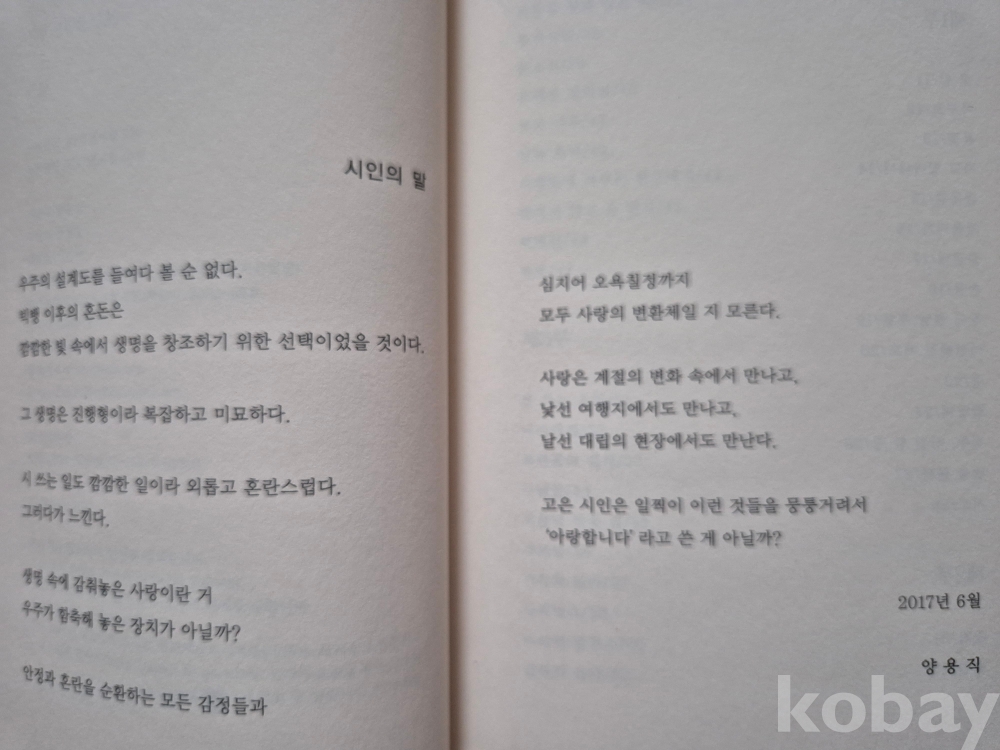 시인의 말
우주의 설계도를 들여다 볼 순 없다.
빅뱅 이후의 혼돈은
깜깜한 빛 속에서 생명을 창조하기 위한 선택이었을 것이다.
그 생명은 진행형이라 복잡하고 미묘하다.
시 쓰는 일도 깜깜한 일이라 외롭고 혼란스럽다.
그러다가 느낀다.
생명 속에 감춰놓은 사랑이란 거
우주가 함축해 놓은 장치가 아닐까?
안정과 혼란을 순환하는 모든 감정들과
심치어 오욕칠정까지
모두 사랑의 변환체일 지 모른다.
사랑은 계절의 변화 속에서 만나고,
낯선 여행지에서도 만나고,
날선 대립의 현장에서도 만난다.
고은 시인은 일찍이 이런 것들을 뭉퉁거려서
‘아랑합니다’ 라고 쓴 게 아닐까?
2017년 6월
양 용 직
kobay